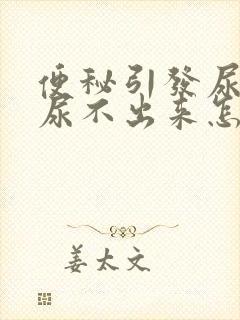 便秘引發尿
尿不出来怎
姜太文